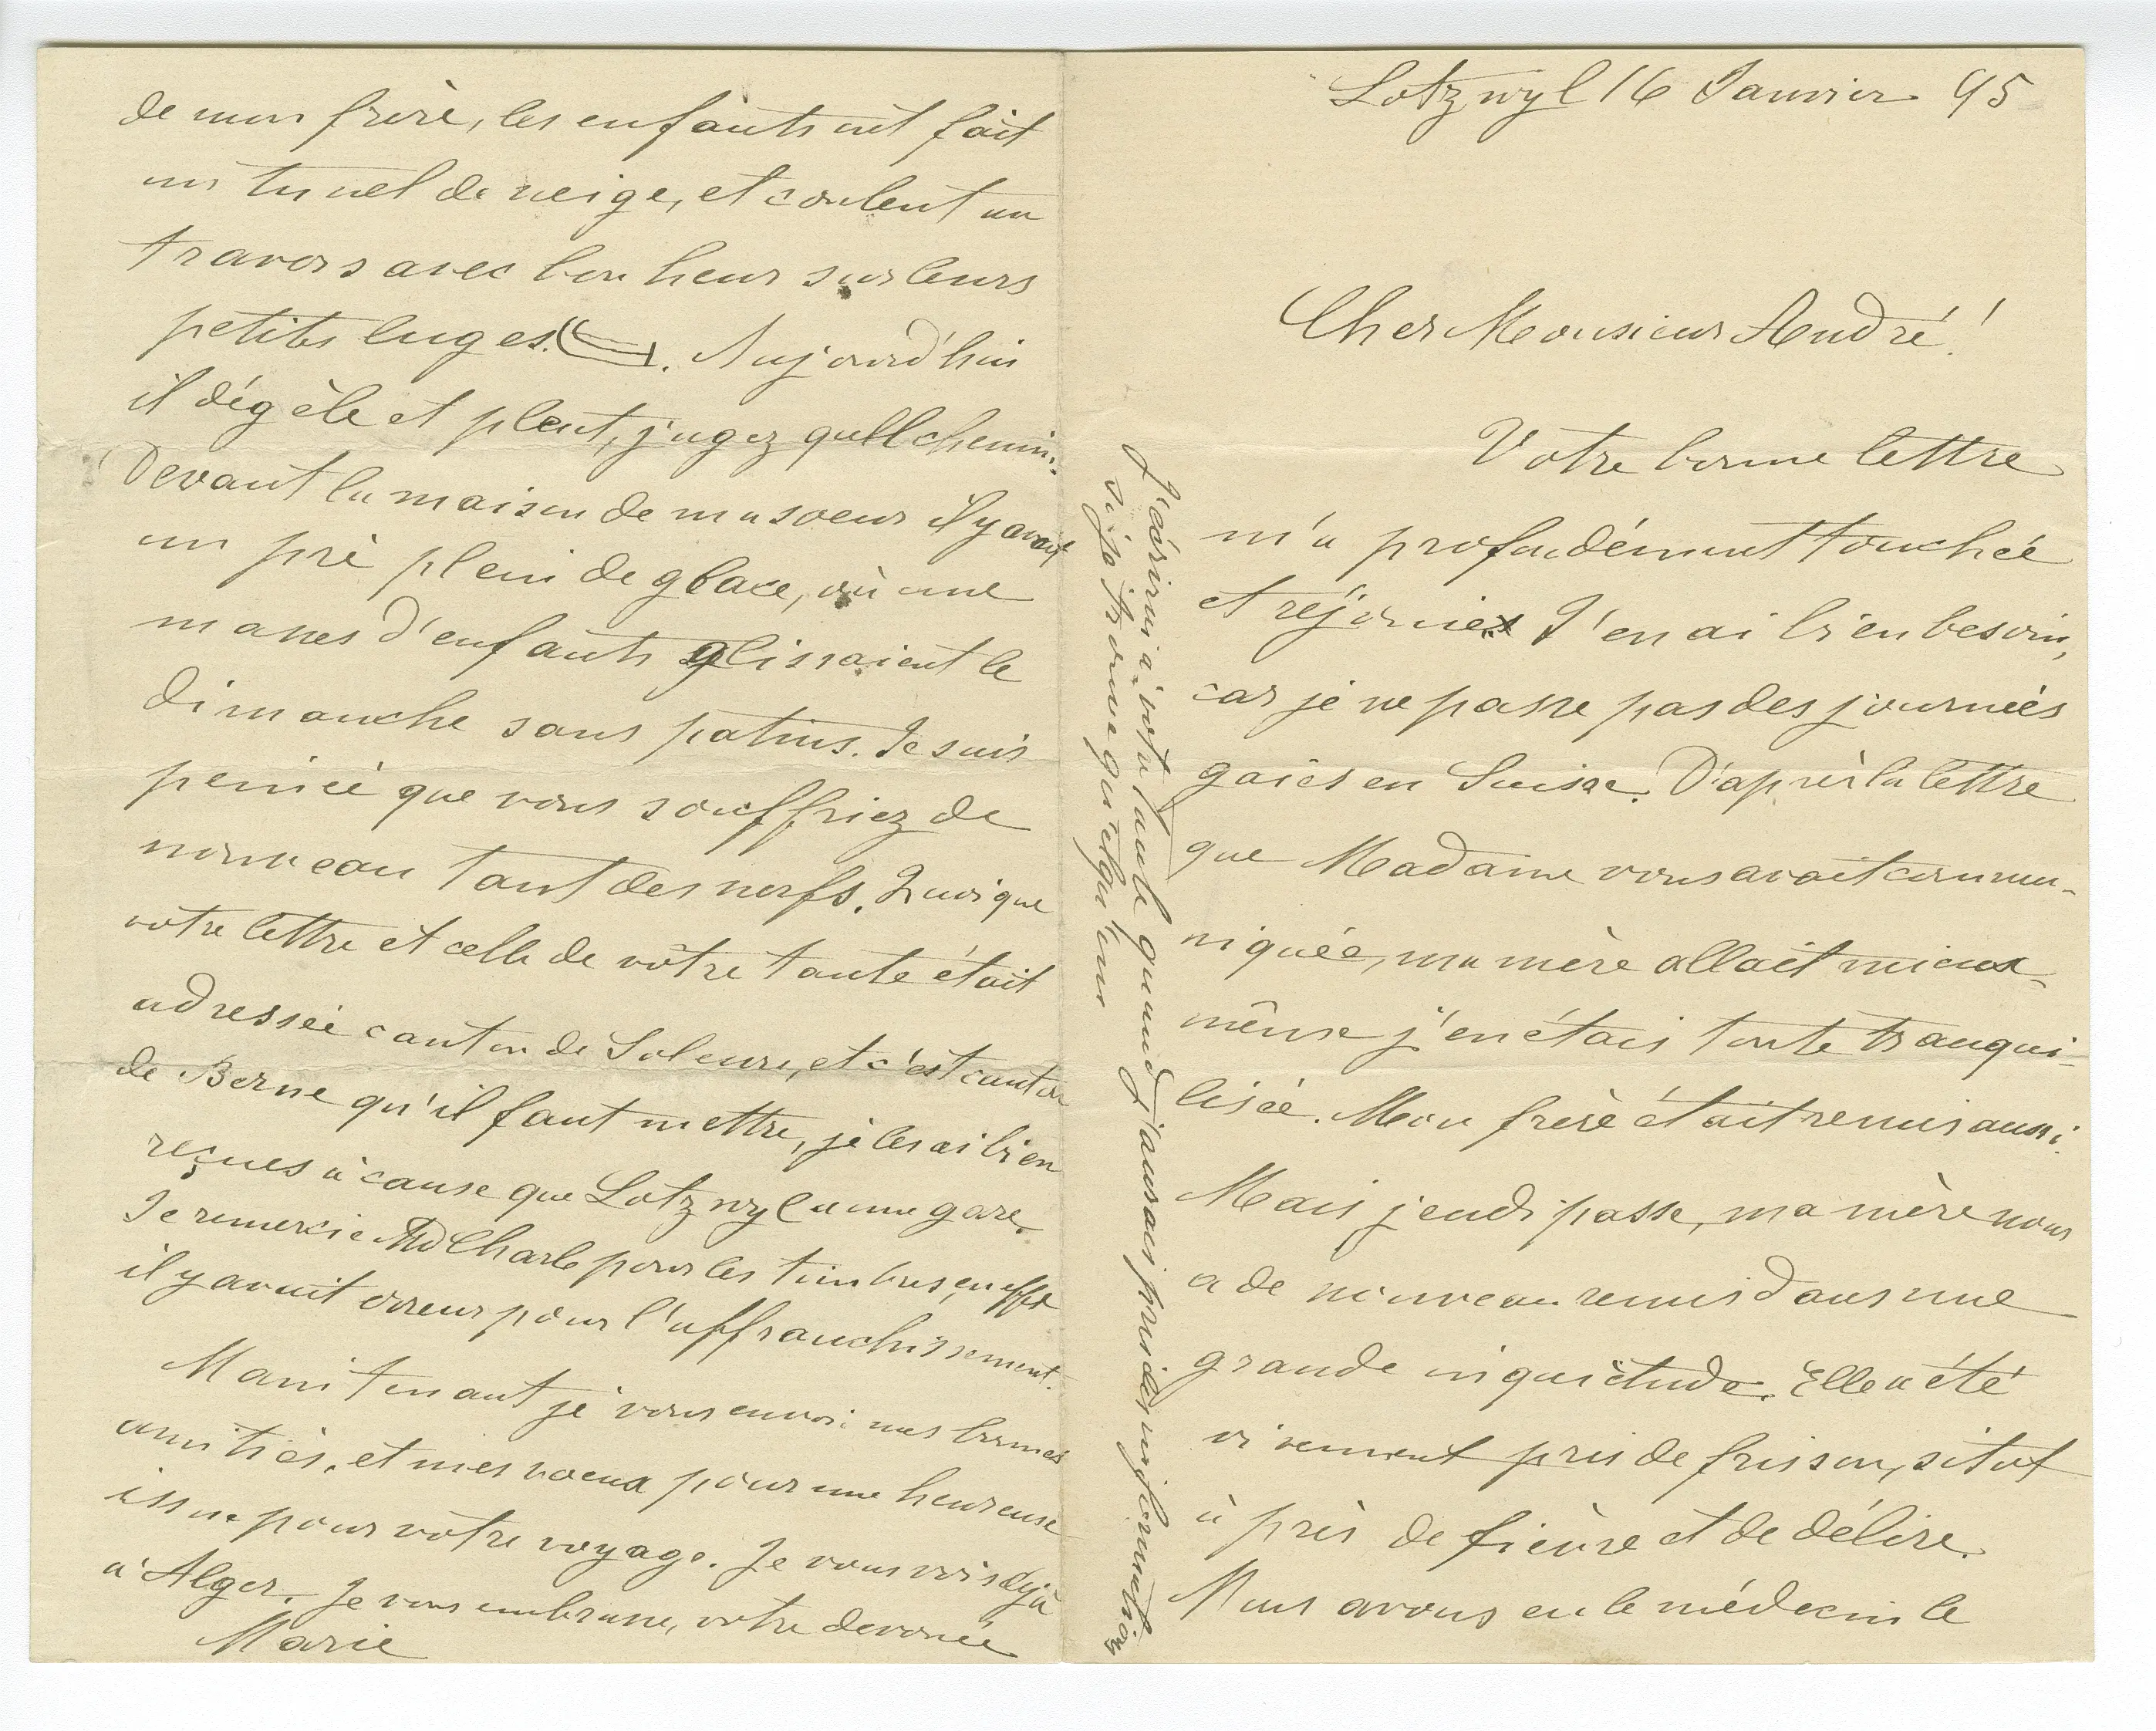 Lotzwyl 16 Janvier 95
Cher Monsieur André!
Votre bonne lettre
m'a profondément touchée
et réjouie. J'en ai bien besoin,
car je ne passe pas des journées
gaies en Suisse. D'après la lettre
que Madame vous avait commu-
niquée, ma mère allait mieux
même j'en étais toute tranqui-
lisée. Mon frère était remis aussi.
Mais jeudi passe, ma mère nous
a de nouveau remis dans une
grande inquiétude. Elle a été
vivement pris de frisson, sitot
à près de fièvre et de délire.
Nous avons eu le médecin le
de mon frère, les enfants ont fait
un tunel de neige, et coulent au
travers avec bonheur sur leurs
petites luges. Aujourd'hui
il dégèle et pleut, jugez quell chemin.
Devant la maison de ma soeur il y avait
un pré plein de glace, où une
masses d'enfants glissaient le
dimanche sans patins. Je suis
peinée que vous souffriez de
nouveau tant des nerfs. Quoique
votre lettre et celle de vôtre tante était
adressée canton de Soleure, et c'est canton
de Berne qu'il faut mettre, je les ai bien
reçues à cause que Lotzwyl a une gare.
Je remercie Md Charle pour les timbres, en effet
il y avait erreur pour l'affranchissement.
Maintenant je vous envoi mes bonnes
amitiés, et mes voeux pour une heureuse
issue pour vôtre voyage. Je vous vois déjà
à Alger. Je vous embrasse, votre devouée
Marie
J'écrirai à votre tante quand j'aurais pris des informations
si je trouve quelqu'un